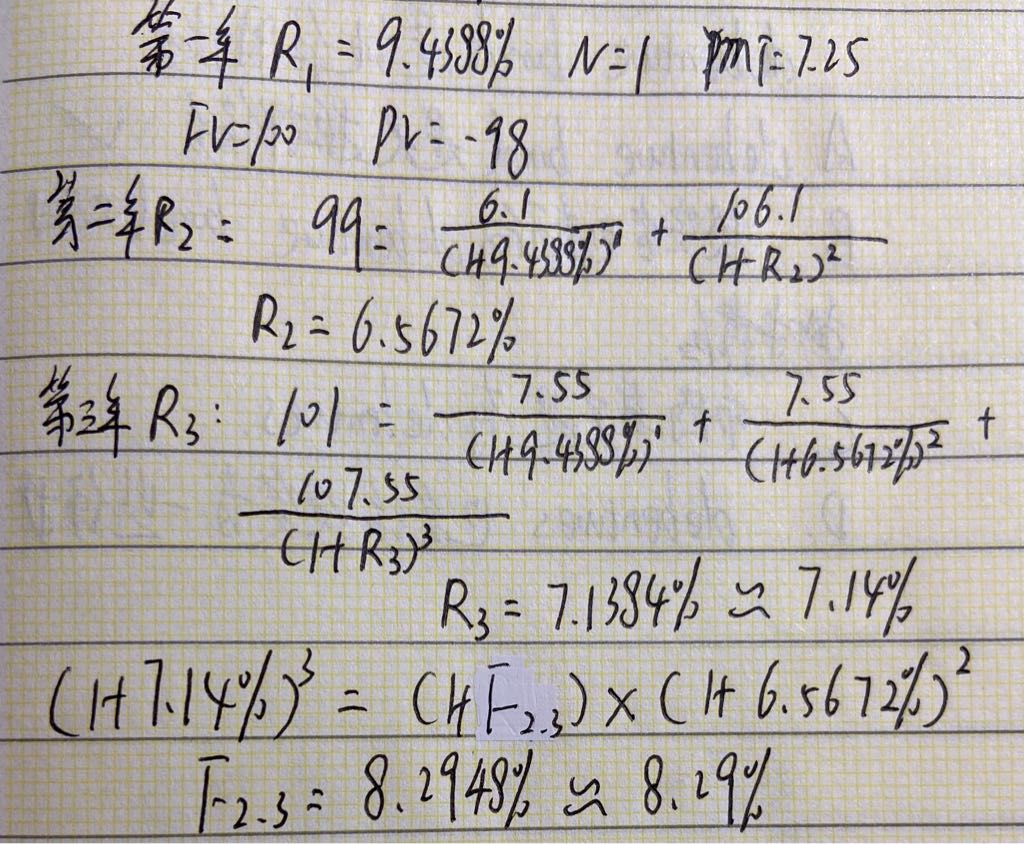 第一年 R₁ = 9.4388% N=1 PMT=7.25
FV=100 PV=-98
第二年R₂ = 99 = 6.1/(1+9.4388%)¹ + 106.1/(1+R₂)²
R₂ = 6.5672%
第三年 R₃: 101 = 7.55/(1+9.4388%)¹ + 7.55/(1+6.5672%)² +
107.55/(1+R₃)³
R₃ = 7.1384% ≈ 7.14%
(1+7.14%)³ = (1+F₂.₃) × (1+6.5672%)²
F₂.₃ = 8.2948% ≈ 8.29%